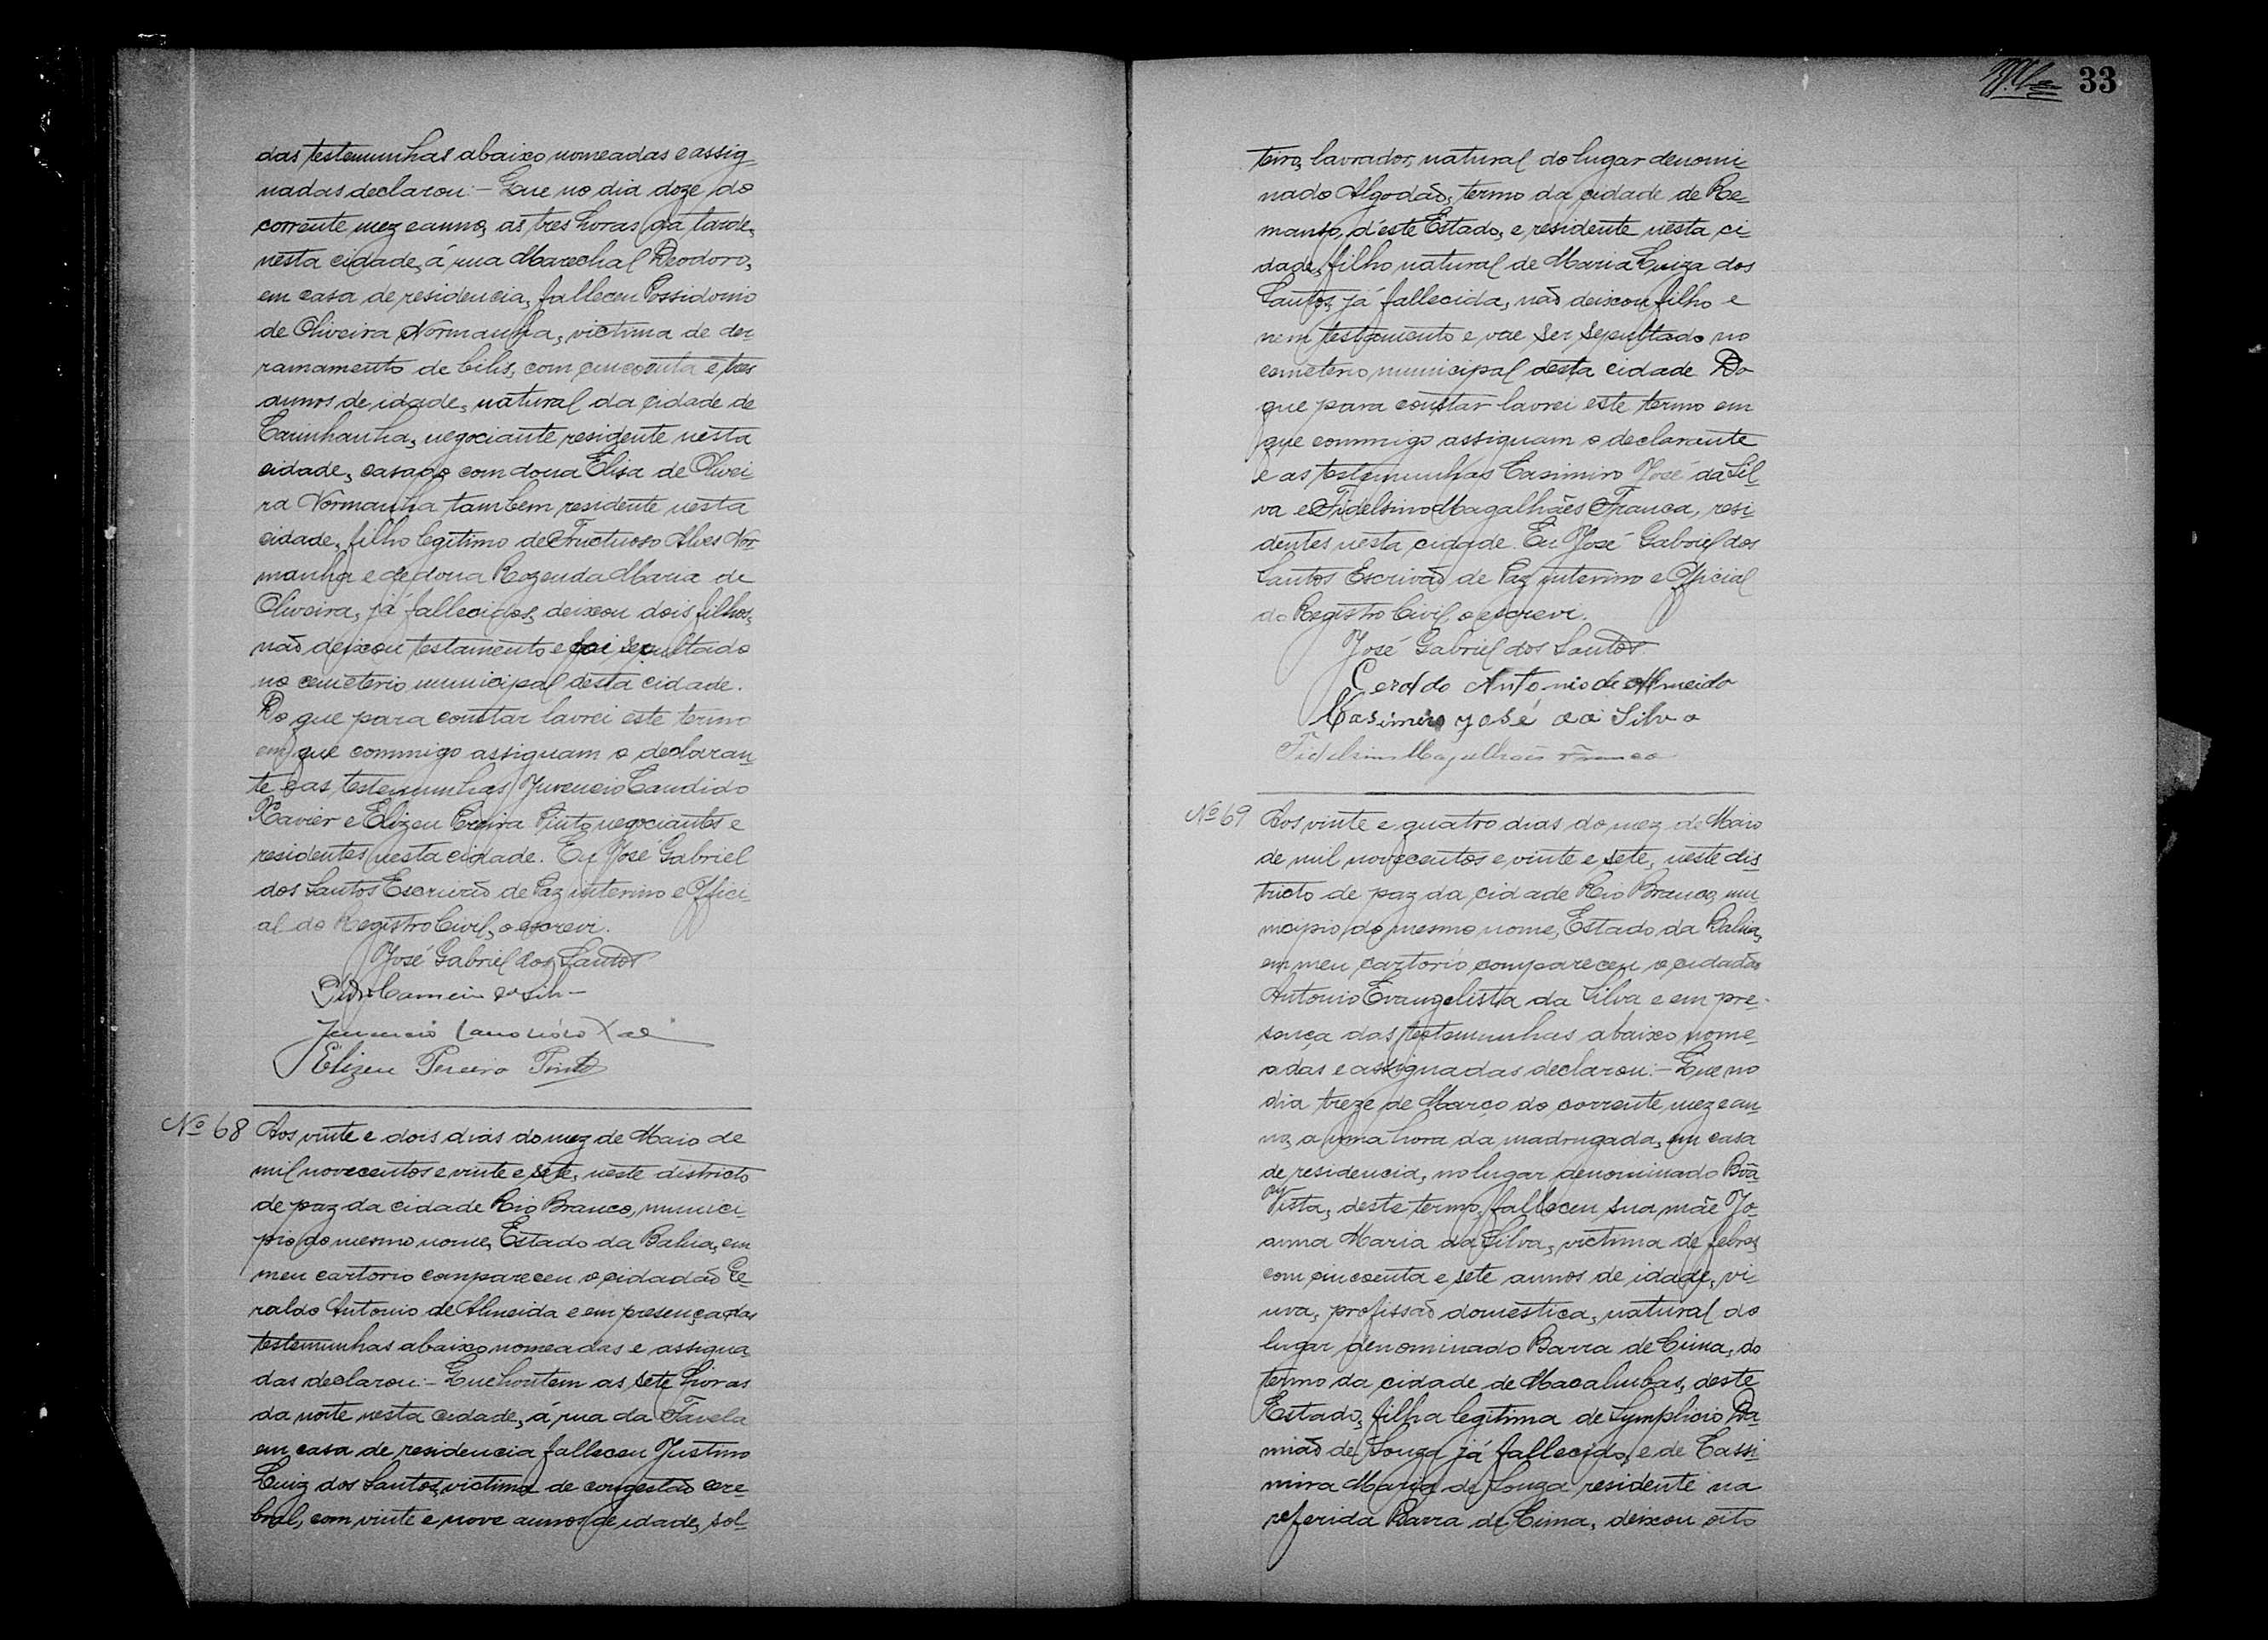 das testemunhas abaixo nomeadas e assig-
nadas declarou:- Que no dia doze do
corrente mez e anno, as tres horas da tarde,
nesta cidade, á rua Marechal Deodoro,
em casa de residencia, falleceu Possidonio
de Oliveira Normanha, victima de der-
ramamento de bilis, com cincoenta e tres
annos de idade, natural da cidade de
Carinhanha, negociante residente nesta
cidade, casado com dona Elisa de Olivei-
ra Normanha tambem residente nesta
cidade, filho legitimo de Fructuoso Alves Nor-
manha e de dona Rozenda Maria de
Oliveira, já fallecidos, deixou dois filhos,
não deixou testamento e foi sepultado
no cemeterio municipal desta cidade.
Do que para constar lavrei este termo
em que commigo assignam o declaran-
te e as testemunhas Juvencio Candido
Xavier e Elizeu Pereira Pinto negociantes e
residentes nesta cidade. Eu José Gabriel
dos Santos Escrivão de Paz interino e Offici-
al do Registro Civil, o escrevi.
José Gabriel dos Santos
Carneiro da Silva
Juvencio Candido Xavier
Elizeu Pereira Pinto
Nº 68 Aos vinte e dois dias do mez de Maio de
mil novecentos e vinte e sete, neste districto
de paz da cidade Rio Branco, munici-
pio do mesmo nome, Estado da Bahia, em
meu cartorio compareceu o cidadão Ge-
raldo Antonio de Almeida e em presença das
testemunhas abaixo nomeadas e assigna-
das declarou:- Que hontem as sete horas
da noite nesta cidade, á rua da Favela
em casa de residencia falleceu Justino
Luiz dos Santos, victima de congestão cere-
bral, com vinte e nove annos de idade, sol-
33
teiro, lavrador, natural do lugar denomi-
nado Algodão, termo da cidade de Re-
manso, d'este Estado, e residente nesta ci-
dade, filho natural de Maria Luiza dos
Santos, já fallecida, não deixou filho e
nem testamento e vae ser sepultado no
cemeterio municipal desta cidade Do
que para constar lavrei este termo em
que commigo assignam o declarante
e as testemunhas Casimiro José da Sil-
va e Fidelsino Magalhães Franca, resi-
dentes nesta cidade. Eu José Gabriel dos
Santos Escrivão de Paz interino e Official
do Registro Civil o escrevi.
José Gabriel dos Santos
Geraldo Antonio de Almeida
Casimiro José da Silva
Fidelsino Magalhães Franca
Nº 69 Aos vinte e quatro dias do mez de Maio
de mil novecentos e vinte e sete, neste dis-
tricto de paz da cidade Rio Branco, mu-
nicipio do mesmo nome, Estado da Bahia,
em meu cartorio compareceu o cidadão
Antonio Evangelista da Silva e em pre-
sença das testemunhas abaixo nome-
adas e assignadas declarou:- Que no
dia treze de Março do corrente mez e an-
no, a uma hora da madrugada, em casa
de residencia, no lugar denominado Bôa
Vista, deste termo, falleceu sua mãe Jo-
anna Maria da Silva, victima de febre,
com cincoenta e sete annos de idade, vi-
uva, profissão domestica, natural do
lugar denominado Barra de Cima, do
termo da cidade de Macahubas, deste
Estado, filha legitima de Symplicio Da-
mião de Souza já fallecido, e de Cassi-
mira Maria de Souza residente na
referida Barra de Cima, deixou oito